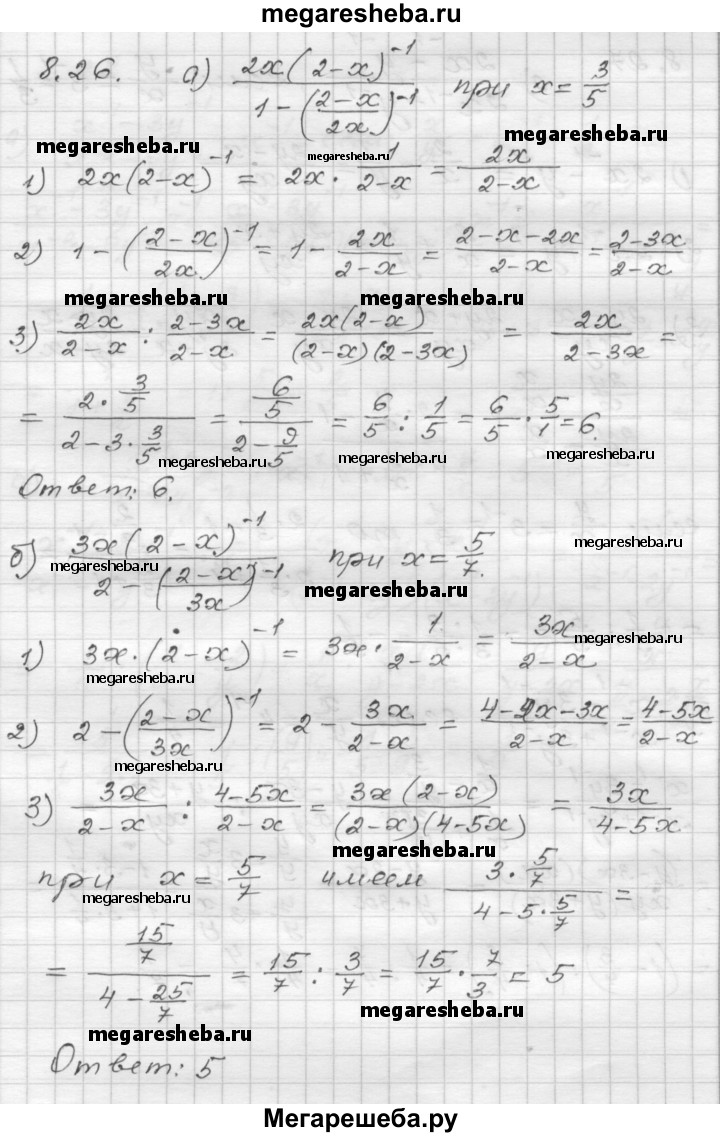 megaresheba.ru
8.26. а) (2x(2-x)^-1)/(1-((2-x)/(2x))^-1) при x = 3/5
megaresheba.ru megaresheba.ru megaresheba.ru
1) 2x(2-x)^-1 = 2x · 1/(2-x) = 2x/(2-x)
2) 1-((2-x)/(2x))^-1 = 1 - 2x/(2-x) = (2-x-2x)/(2-x) = (2-3x)/(2-x)
megaresheba.ru megaresheba.ru
3) 2x/(2-x) : (2-3x)/(2-x) = (2x(2-x))/((2-x)(2-3x)) = 2x/(2-3x) =
= (2 · 3/5)/(2-3 · 3/5) = (6/5)/(2-9/5) = 6/5 : 1/5 = 6/5 · 5/1 = 6.
megaresheba.ru megaresheba.ru megaresheba.ru
Ответ: 6.
б) (3x(2-x)^-1)/(2-((2-x)/(3x))^-1) при x = 5/7.
megaresheba.ru megaresheba.ru megaresheba.ru
1) 3x · (2-x)^-1 = 3x · 1/(2-x) = 3x/(2-x)
megaresheba.ru megaresheba.ru
2) 2-((2-x)/(3x))^-1 = 2 - 3x/(2-x) = (4-2x-3x)/(2-x) = (4-5x)/(2-x)
megaresheba.ru
3) 3x/(2-x) : (4-5x)/(2-x) = (3x(2-x))/((2-x)(4-5x)) = 3x/(4-5x)
megaresheba.ru
при x = 5/7 имеем (3 · 5/7)/(4-5 · 5/7) =
megaresheba.ru megaresheba.ru
= (15/7)/(4-25/7) = 15/7 : 3/7 = 15/7 · 7/3 = 5
megaresheba.ru megaresheba.ru
Ответ: 5
Мегарешеба.ру